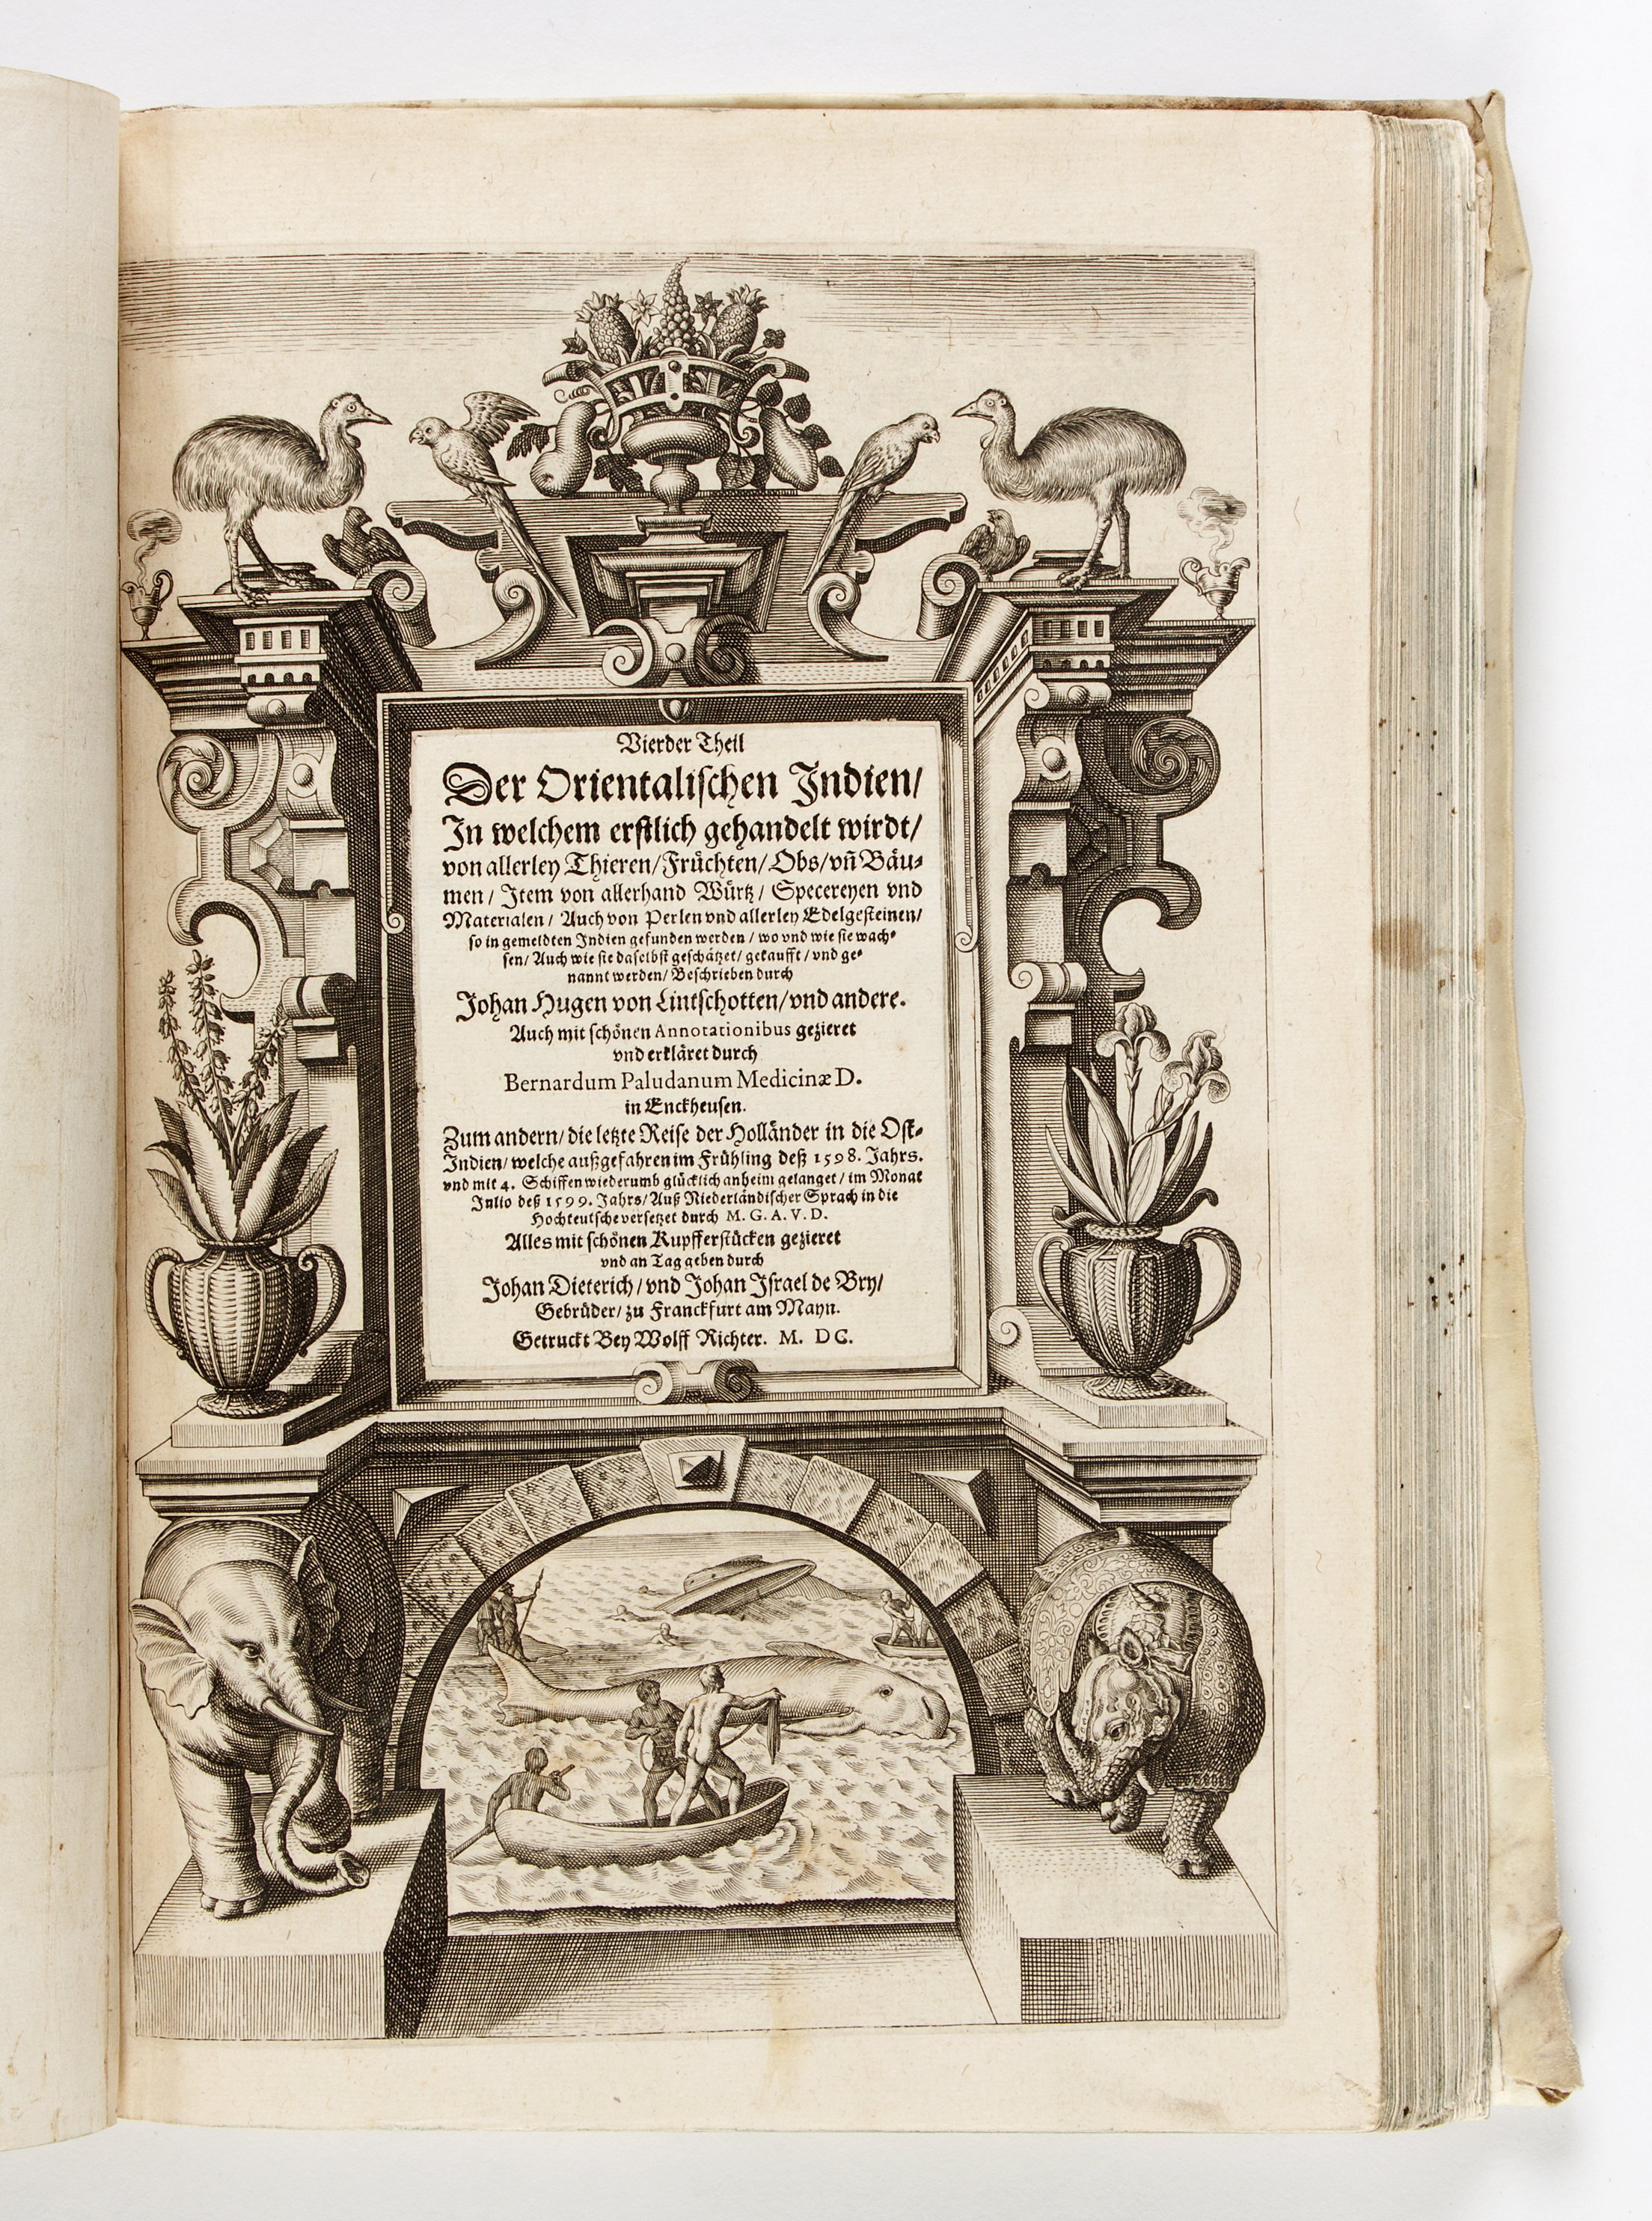 Vierder Theil
Der Orientalischen Indien/
In welchem erstlich gehandelt wirdt/
von allerley Thieren/Früchten/Obs/vn̄ Bäu-
men/Item von allerhand Würtz/Specereyen vnd
Materialen/Auch von Perlen vnd allerley Edelgesteinen/
so in gemeldten Indien gefunden werden/wo vnd wie sie wach-
sen/Auch wie sie daselbst geschätzet/gekaufft/vnd ge-
nannt werden/Beschrieben durch
Johan Hugen von Lintschotten/vnd andere.
Auch mit schönen Annotationibus gezieret
vnd erkläret durch
Bernardum Paludanum Medicinæ D.
in Enckheusen.
Zum andern/die letzte Reise der Holländer in die Ost-
Indien/welche außgefahren im Frühling deß 1598. Jahrs.
vnd mit 4. Schiffen wiederumb glücklich anheim gelanget/im Monat
Julio deß 1599. Jahrs/Auß Niederländischer Sprach in die
Hochteutsche versetzet durch M. G. A. V. D.
Alles mit schönen Kupfferstücken gezieret
vnd an Tag geben durch
Johan Dieterich/vnd Johan Israel de Bry/
Gebrüder/zu Franckfurt am Mayn.
Getruckt Bey Wolff Richter. M. DC.